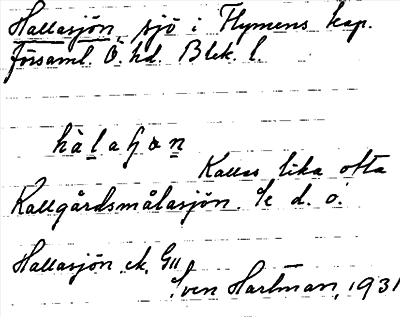 Hallasjön, sjö i Flymens kap.
församl. Ö. hd. Blek. l.
hàlaʃɷn
Kallas lika ofta
Kallgårdsmålasjön. Se d. o.
Hallasjön ek. G11
Sven Hartman, 1931